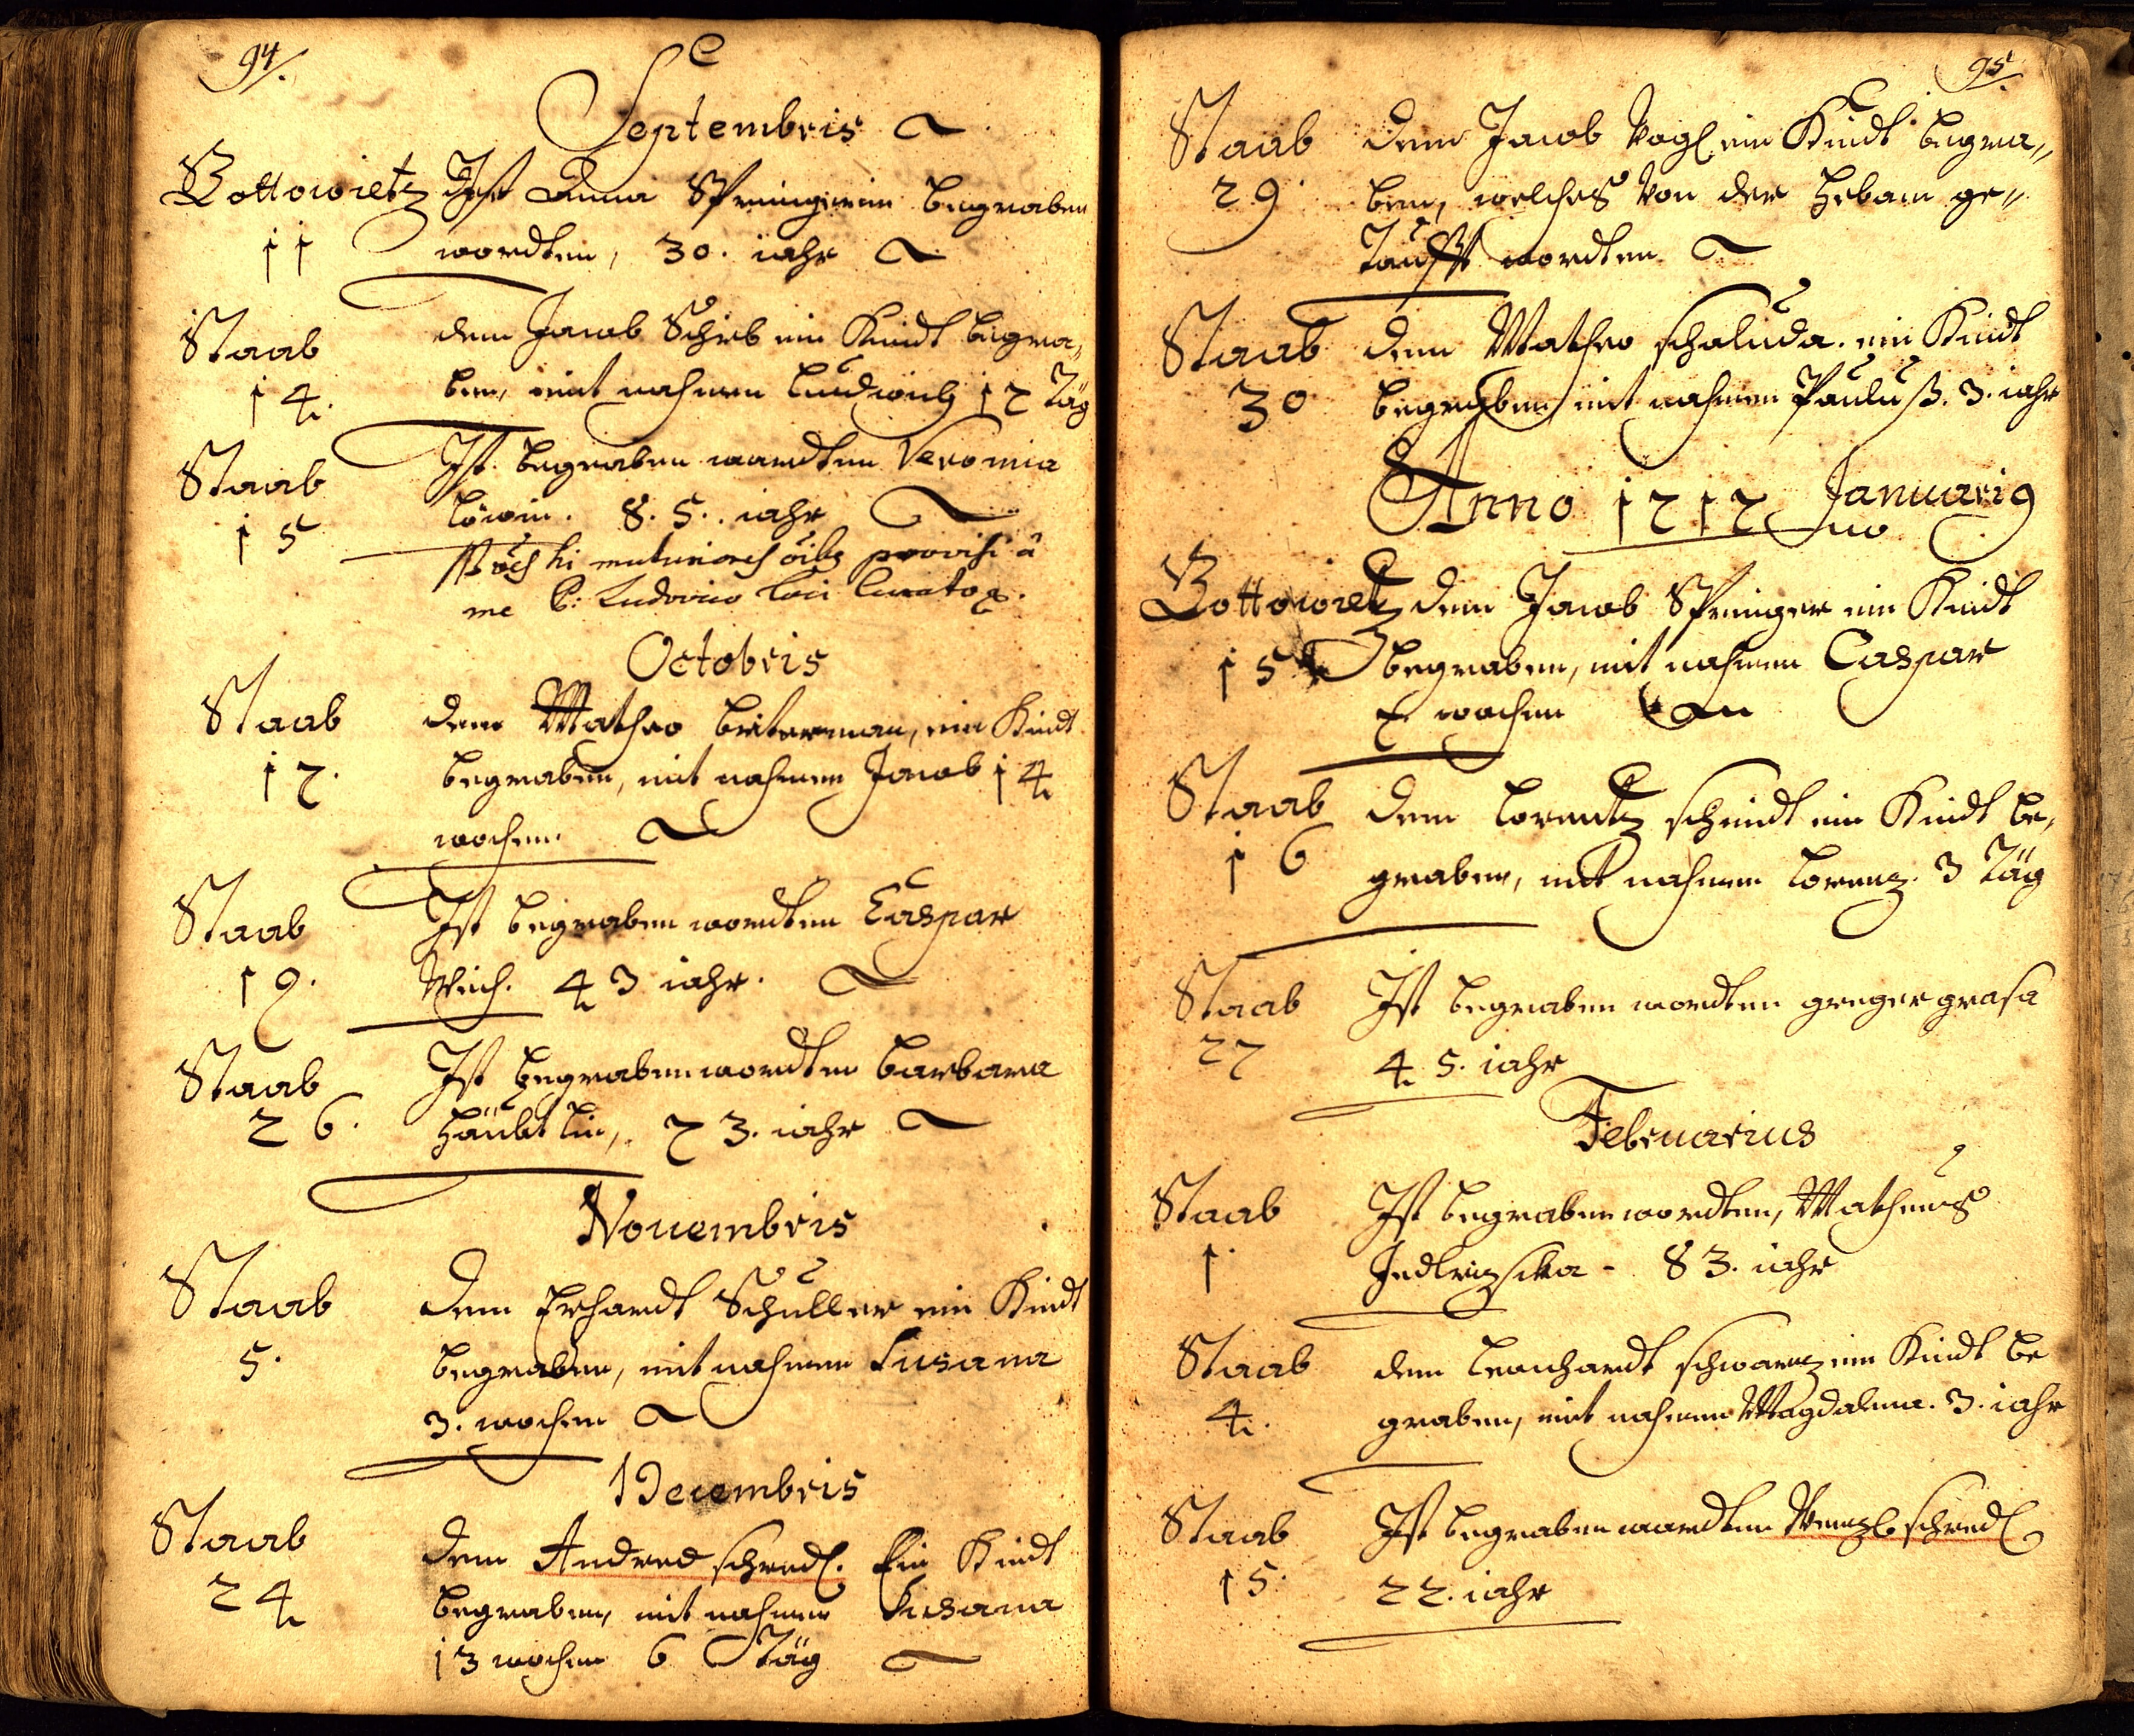 94.
Septembris
Bottowietz Ist Anna Springerin begraben
11 wordten, 30. iahr
Staab dem Jacob Schreb ein Kindt begra,,
14. ben, mit nahmen Ludwich 17 Täg
Staab Ist begraben wordten Veronica
15 Löwin. 8.5. iahr
me P: Ludovico loci Curato
Octobris
Staab dem Matheo biterman, ein Kindt
17. begraben, mit nahmen Jacob 14
wochen
Staab Ist begraben wordten Caspar
19. 43 iahr.
Staab Ist begraben wordten barbara
26. Häubtlin, 73. iahr
Nouembris
Staab dem Erhardt Schuller ein Kindt
5. begraben, mit nahmen Susana
3. wochen
Decembris
Staab dem Andrea schredl. Ein Kindt
24 begraben, mit nahmen Susana
13 wochen 6 Täg
95.
Staab dem Jacob Vogl ein Kindt begra,,
29. ben, welches Von der Hebam ge,,
taufft wordten
Staab dem Matheo schaluda. ein Kindt
30 begraben, mit nahmen Pauluß. 3. iahr
Anno 1717 Januari9
Bottowietz dem Jacob Springer ein Kindt
15 begraben, mit nahmen Caspar
wochen
Staab dem Lorentz schmidt ein Kindt be,
16 graben, mit nahmen Lorenz. 3 Täg
Staab Ist begraben wordten greger grasa
27 45. iahr
Februarius
Staab Ist begraben wordten, Matheus
1. Jedlizscka - 83. iahr
Staab dem Leonhardt schwarz ein Kindt be
4. graben, mit nahmen Magdalena. 3. iahr
Staab Ist begraben wordten Wenzl schredl
15. 22. iahr